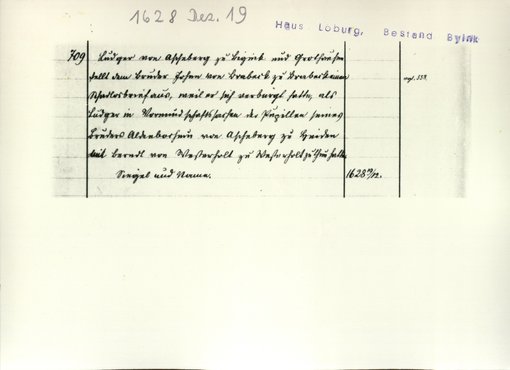 1628 Dez. 19
Haus Loburg, Bestand Byink
709
Ludger von Ascheberg zu Byink und Grothausen
stellt dem Bruder Johan von Brabeck zu Brabeck einen
Schadlosbrief aus, weil er sich verbürgt hatte, als
Ludger in Vormundschaftssachen der Pupillen seines
Bruders Aldenbochum von Ascheberg zu Heiden
mit Berndt von Westerholt zu Westerholt zu thun hatte.
Siegel und Name.
1628 19/12.
vgl. 553.